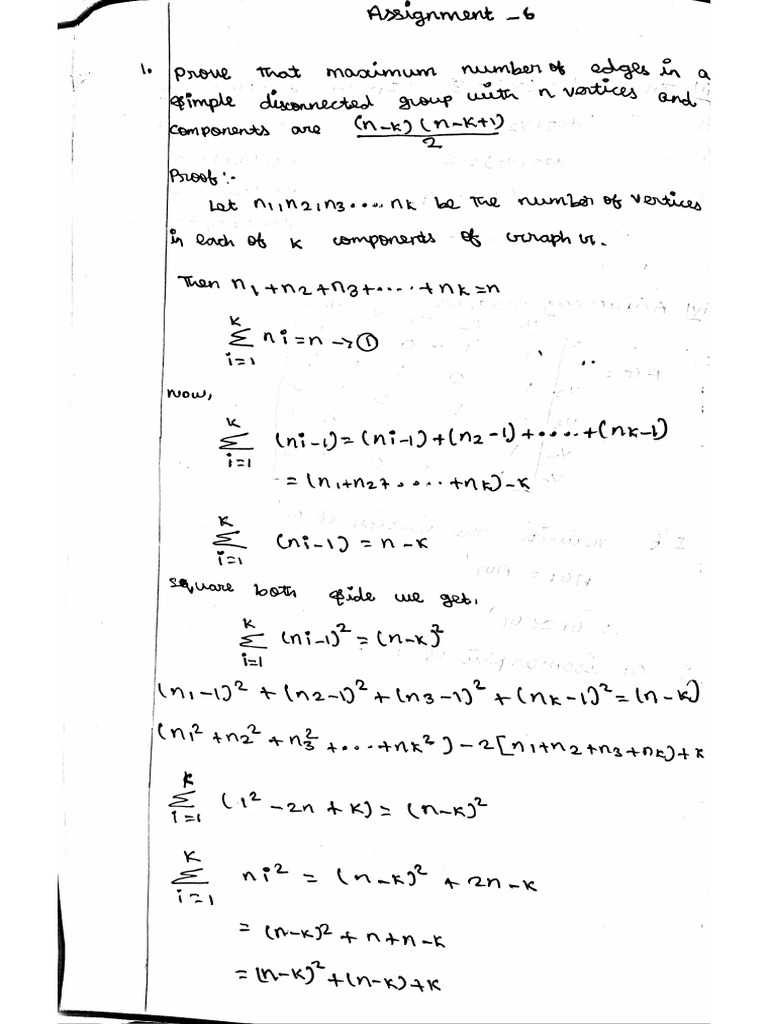 Assignment -6
1. prove that maximum number of edges in a
simple disconnected group with n vertices and
components are (n-k)(n-k+1)/2
Proof:-
Let n1,n2,n3....nk be the number of vertices
in each of k components of Graph G.
Then n1+n2+n3+....+nk=n
k Σ i=1 ni=n →①
now,
k Σ i=1 (ni-1)=(ni-1)+(n2-1)+....+(nk-1)
=(n1+n2+....+nk)-k
k Σ i=1 (ni-1)=n-k
square both side we get,
k Σ i=1 (ni-1)²=(n-k)²
(n1-1)²+(n2-1)²+(n3-1)²+(nk-1)²=(n-k)
(n1²+n2²+n3²+....+nk²)-2[n1+n2+n3+nk)+k
k Σ i=1 (i²-2n+k)=(n-k)²
k Σ i=1 ni²=(n-k)²+2n-k
=(n-k)²+n+n-k
=(n-k)²+(n-k)+k